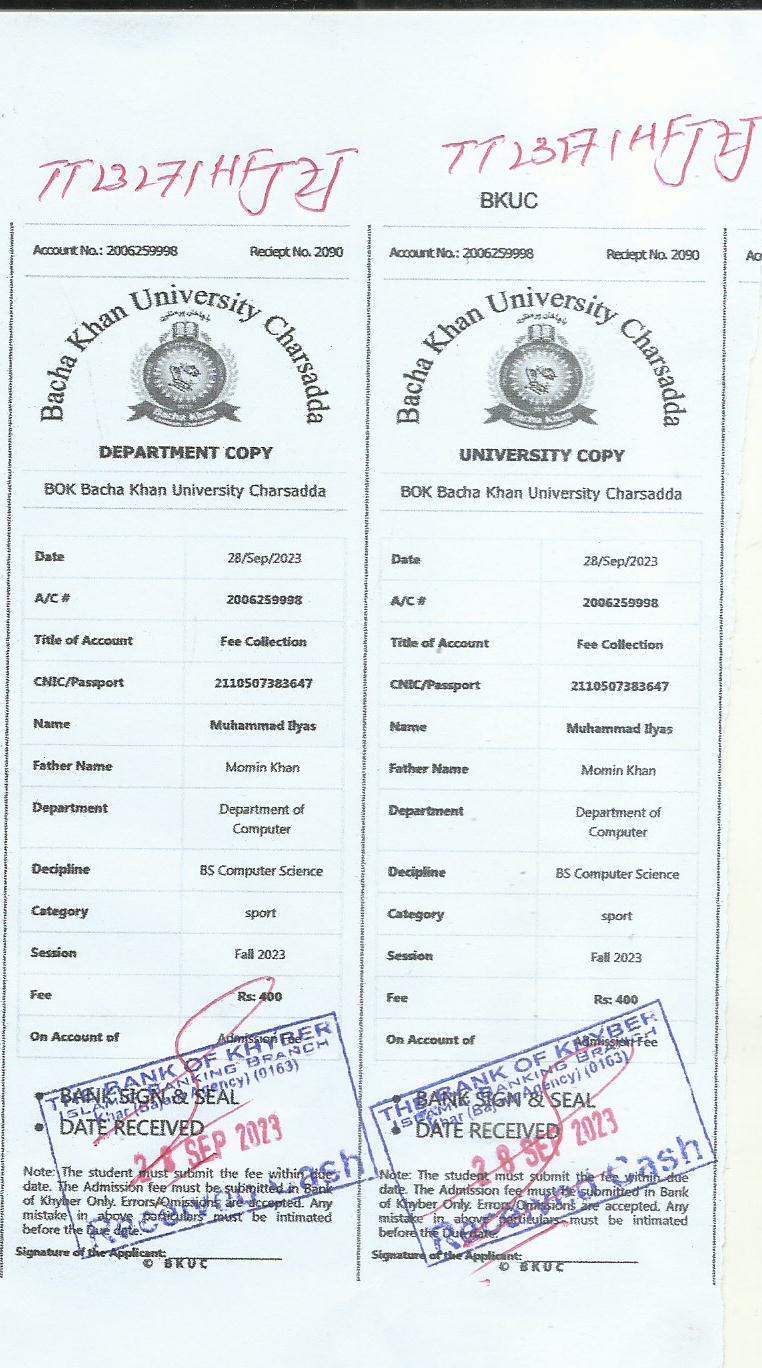 BKUC
Account No.: 2006259998 Reciept No. 2090
Bacha Khan University Charsadda
Bacha Khan
DEPARTMENT COPY
BOK Bacha Khan University Charsadda
Date 28/Sep/2023
A/C # 2006259998
Title of Account Fee Collection
CNIC/Passport 2110507383647
Name Muhammad Ilyas
Father Name Momin Khan
Department Department of
Computer
Decipline BS Computer Science
Category sport
Session Fall 2023
Fee Rs: 400
On Account of Admission Fee
THE BANK OF KHYBER
ISLAMIC BANKING BRANCH
Khar (Bajaur Agency) (0163)
• BANK SIGN & SEAL
• DATE RECEIVED
28 SEP 2023
Received Cash
Note: The student must submit the fee within due
date. The Admission fee must be submitted in Bank
of Khyber Only. Errors/Omissions are accepted. Any
mistake in above particulars must be intimated
before the Due date.
Signature of the Applicant:
© BKUC
Account No.: 2006259998 Reciept No. 2090
Bacha Khan University Charsadda
Bacha Khan
UNIVERSITY COPY
BOK Bacha Khan University Charsadda
Date 28/Sep/2023
A/C # 2006259998
Title of Account Fee Collection
CNIC/Passport 2110507383647
Name Muhammad Ilyas
Father Name Momin Khan
Department Department of
Computer
Decipline BS Computer Science
Category sport
Session Fall 2023
Fee Rs: 400
On Account of Admission Fee
THE BANK OF KHYBER
ISLAMIC BANKING BRANCH
Khar (Bajaur Agency) (0163)
• BANK SIGN & SEAL
• DATE RECEIVED
28 SEP 2023
Received Cash
Note: The student must submit the fee within due
date. The Admission fee must be submitted in Bank
of Khyber Only. Errors/Omissions are accepted. Any
mistake in above particulars must be intimated
before the Due date.
Signature of the Applicant:
© BKUC
Ac